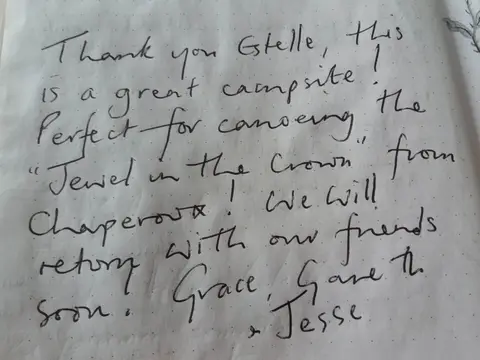 Thank you Estelle, this
is a great campsite!
Perfect for canoeing the
"Jewel in the Crown" from
We will
return with our friends
soon! Grace, Gareth
& Jesse